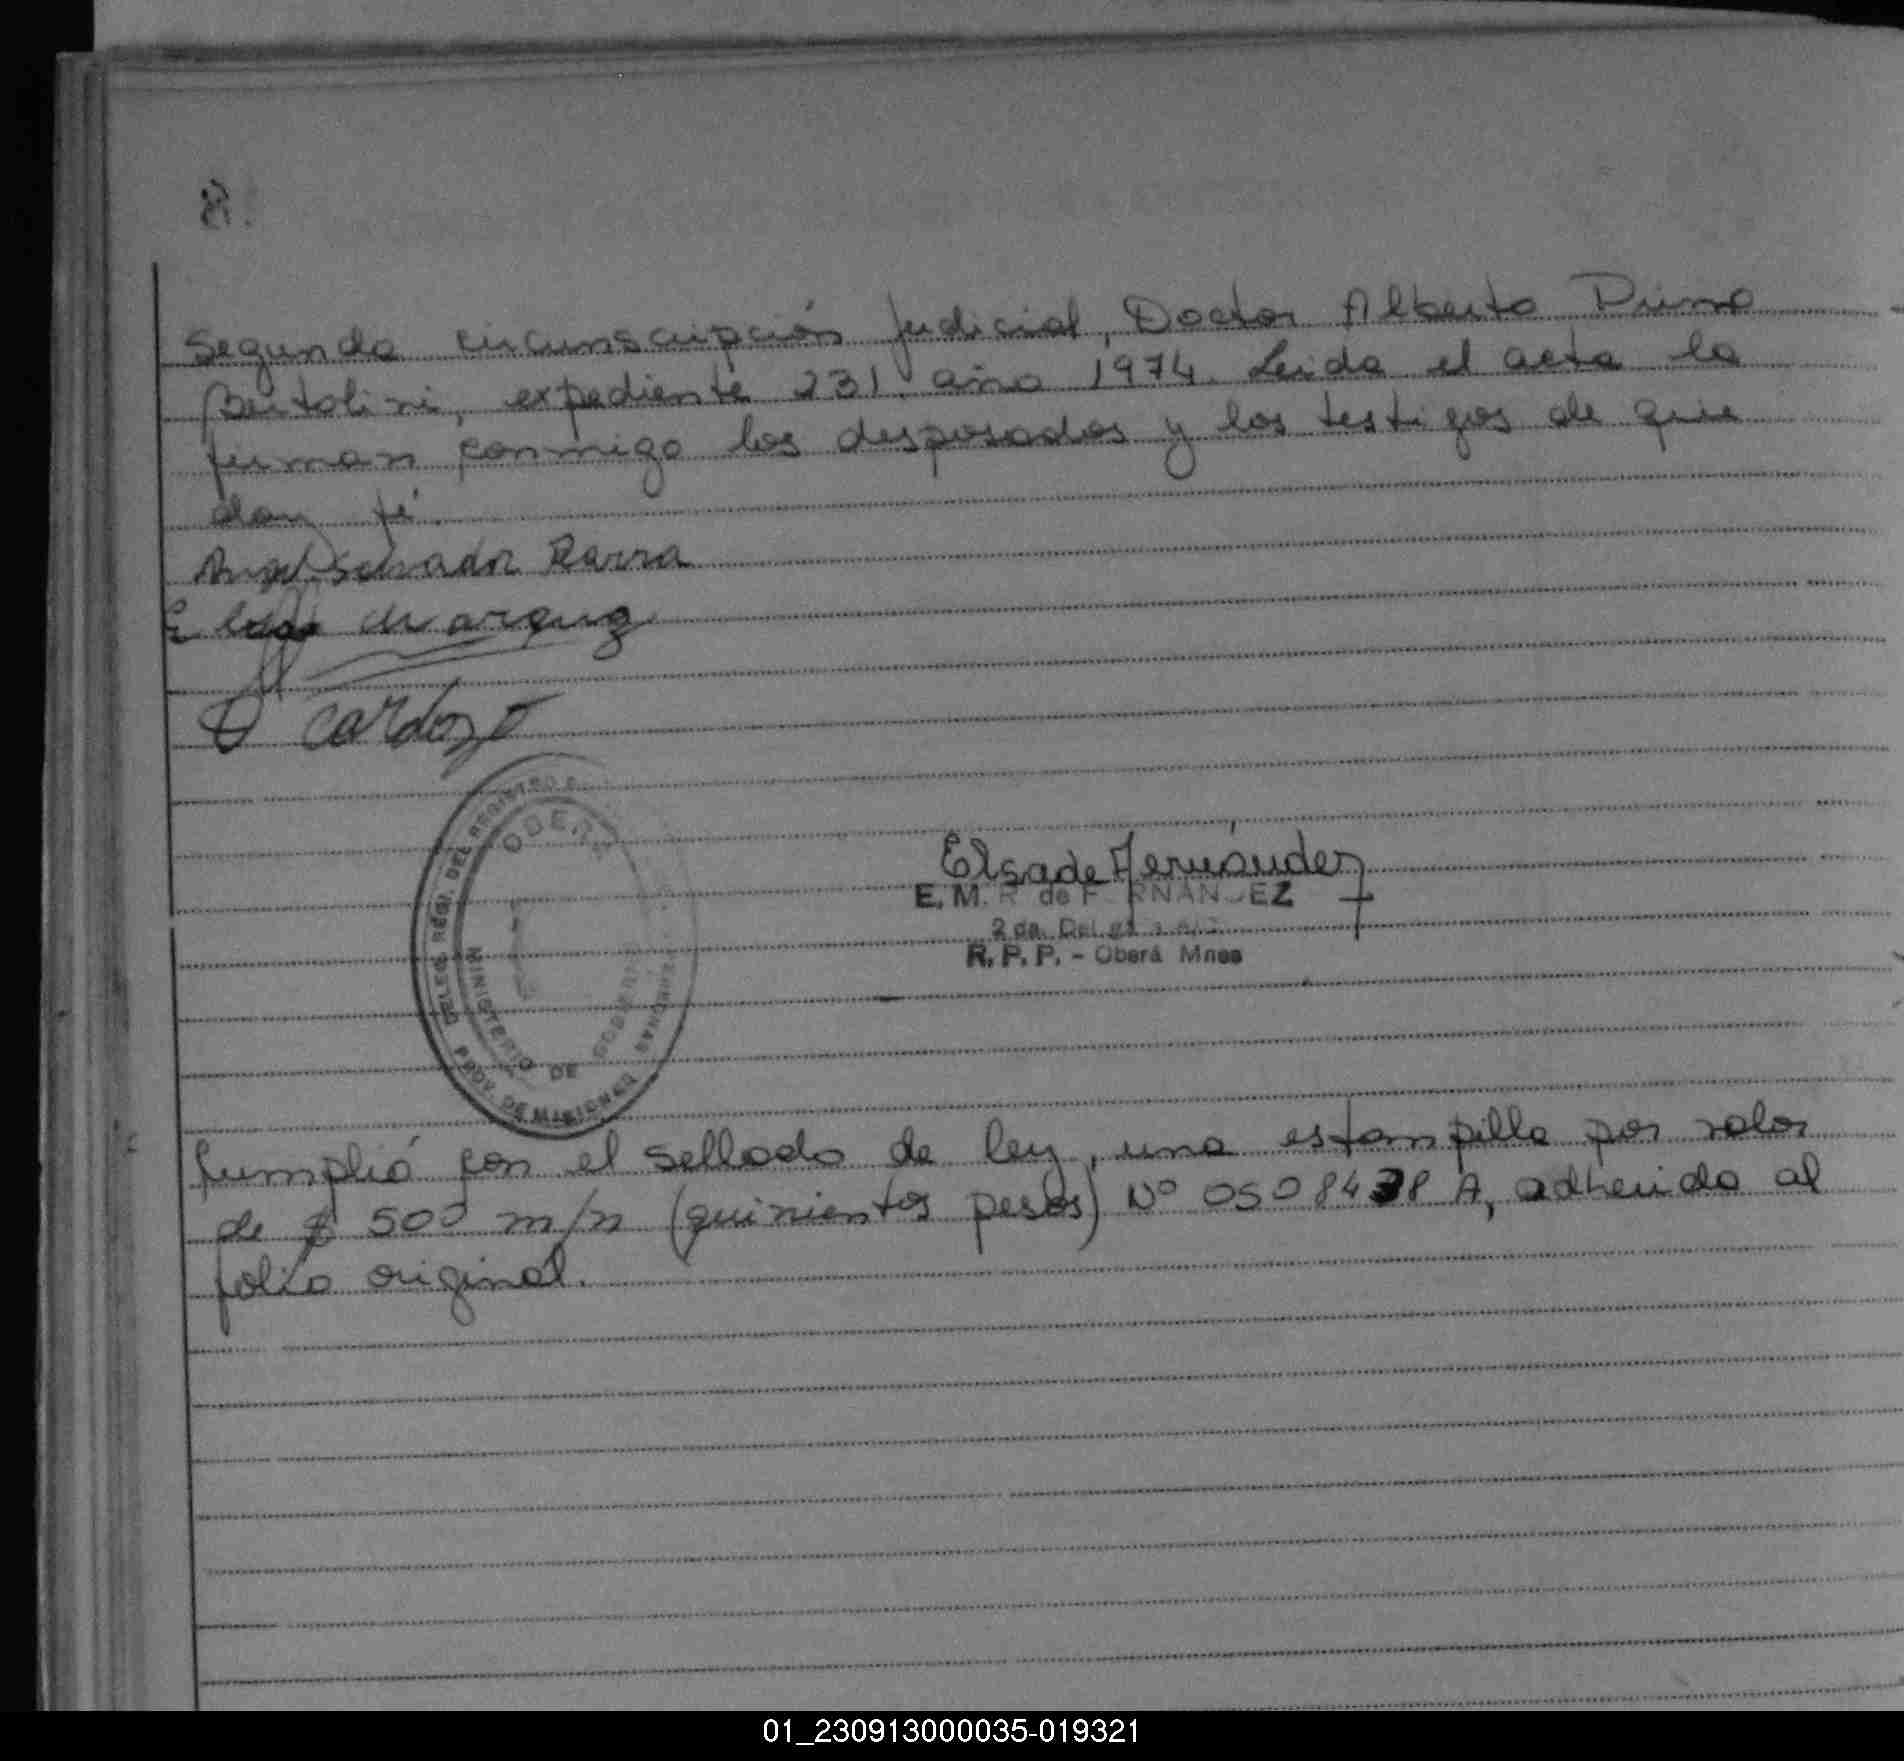 8.
Segunda circunscripción judicial, Doctor Alberto Primo
Bertolini, expediente 231, año 1974. Leida el acta la
firman conmigo los desposados y los testigos de que
doy fé.
Angel Salvador
Marquez
Cardozo
DELEG. REGI. DEL REGISTRO
PROV. DE MISIONES
MINISTERIO DE GOBIERNO
Elsa de Fernández
E. M. R. de FERNANDEZ
2 da.
R. P. P. - Oberá Mnes
Cumplió con el sellado de ley, una estampilla por valor
de $ 500 m/n (quinientos pesos) Nº 0508438 A, adherida al
folio original.
01_230913000035-019321